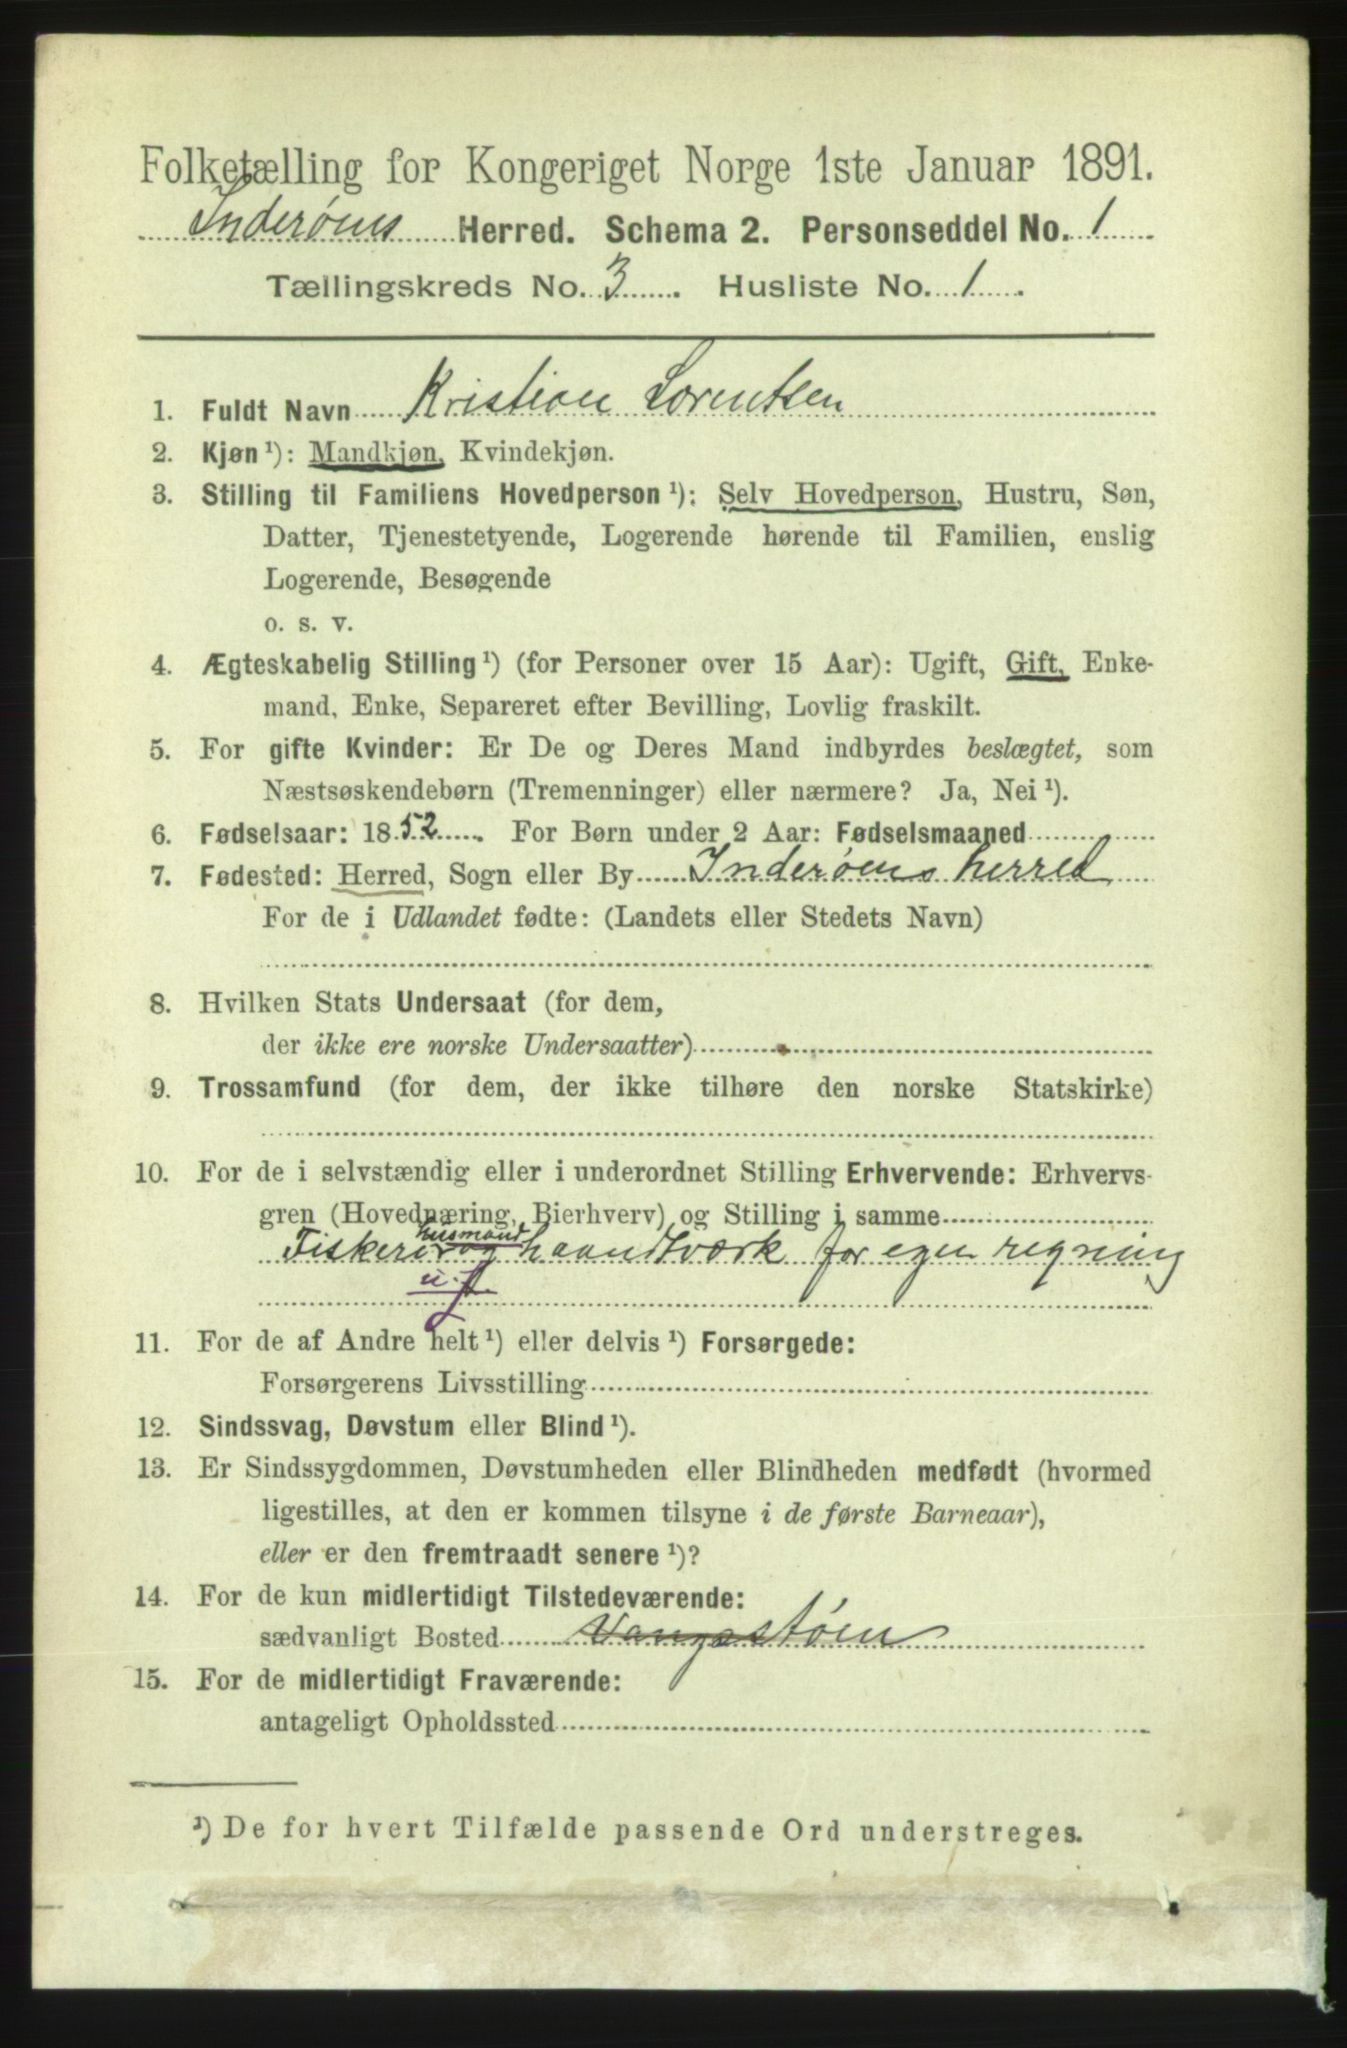 Folketælling for Kongeriget Norge 1ste Januar 1891.
Inderøens Herred. Schema 2. Personseddel No. 1
Tællingskreds No. 3. Husliste No. 1.
1. Fuldt Navn Kristian Lorentsen
2. Kjøn ¹): Mandkjøn, Kvindekjøn.
3. Stilling til Familiens Hovedperson ¹): Selv Hovedperson, Hustru, Søn,
Datter, Tjenestetyende, Logerende hørende til Familien, enslig
Logerende, Besøgende
o. s. v.
4. Ægteskabelig Stilling ¹) (for Personer over 15 Aar): Ugift, Gift, Enke-
mand, Enke, Separeret efter Bevilling, Lovlig fraskilt.
5. For gifte Kvinder: Er De og Deres Mand indbyrdes beslægtet, som
Næstsøskendebørn (Tremenninger) eller nærmere? Ja, Nei ¹).
6. Fødselsaar: 1852. For Børn under 2 Aar: Fødselsmaaned
7. Fødested: Herred, Sogn eller By Inderøens herred
For de i Udlandet fødte: (Landets eller Stedets Navn)
8. Hvilken Stats Undersaat (for dem,
der ikke ere norske Undersaatter)
9. Trossamfund (for dem, der ikke tilhøre den norske Statskirke)
10. For de i selvstændig eller i underordnet Stilling Erhvervende: Erhvervs-
gren (Hovednæring, Bierhverv) og Stilling i samme
husmand
Fiskeri og haandtværk for egen regning
u. f.
11. For de af Andre helt ¹) eller delvis ¹) Forsørgede:
Forsørgerens Livsstilling
12. Sindssvag, Døvstum eller Blind ¹).
13. Er Sindssygdommen, Døvstumheden eller Blindheden medfødt (hvormed
ligestilles, at den er kommen tilsyne i de første Barneaar),
eller er den fremtraadt senere ¹)?
14. For de kun midlertidigt Tilstedeværende:
sædvanligt Bosted Vangstøen
15. For de midlertidigt Fraværende:
antageligt Opholdssted
¹) De for hvert Tilfælde passende Ord understreges.